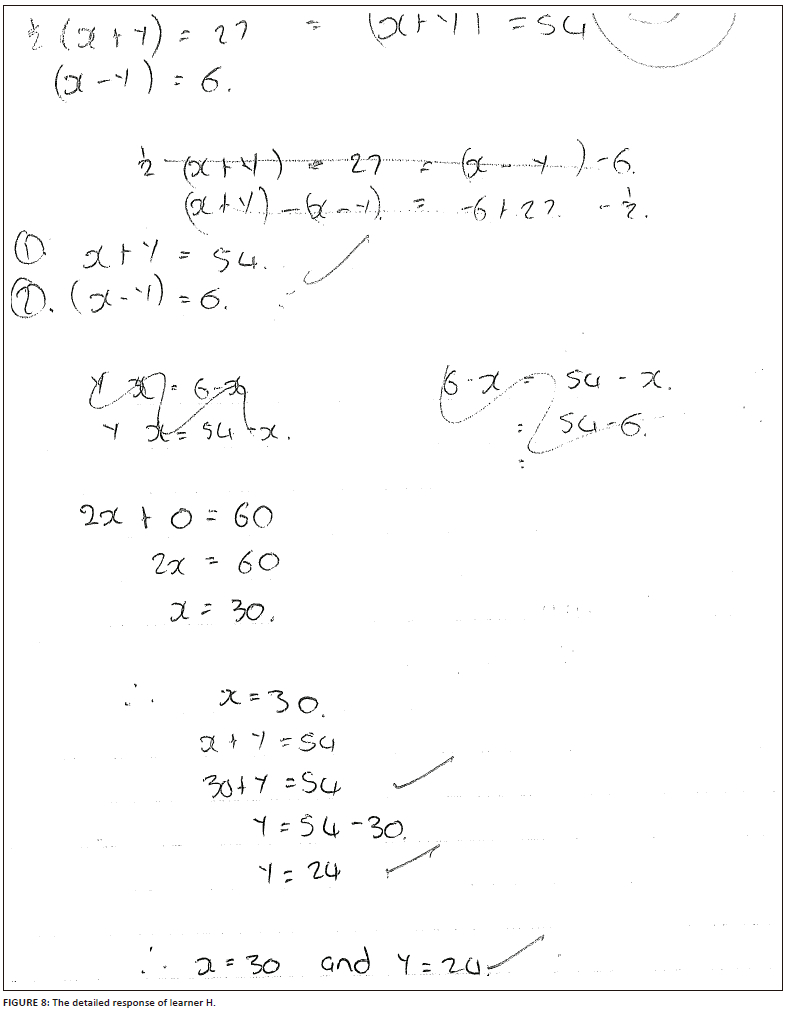 ½ (x + y) = 27 = (x + y) = 54
(x - y) = 6.
½ (x + y) = 27 = (x - y) - 6.
(x + y) - (x - y) = -6 + 27 - ½.
①. x + y = 54.
②. (x - y) = 6.
y x = 6 - x
y x = 54 - x.
6 - x = 54 - x.
= 54 - 6.
=
2x + 0 = 60
2x = 60
x = 30.
∴ x = 30.
x + y = 54
30 + y = 54
y = 54 - 30.
y = 24
∴ x = 30 and y = 24.
FIGURE 8: The detailed response of learner H.